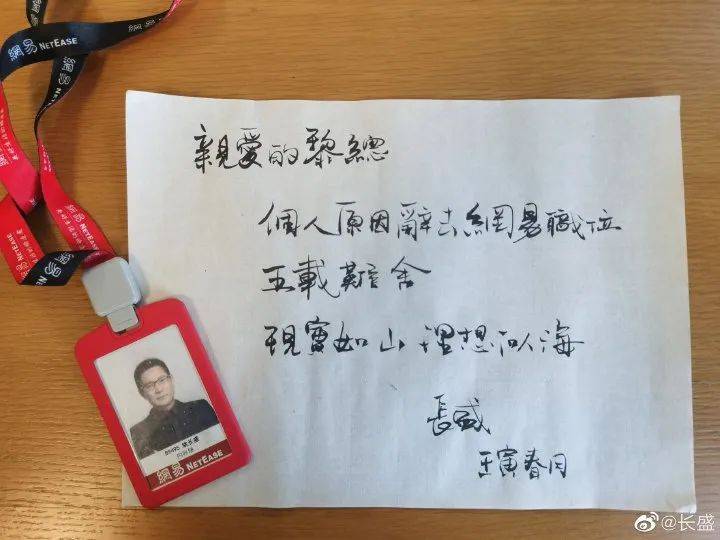 網易 NETEASE
網易 NETEASE
親愛的黎總
個人原因辭去網易職位
五載難舍
現實如山 理想似海
長盛
壬寅春月
網易 NETEASE
@长盛